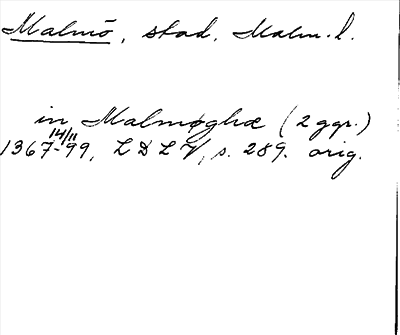 Malmö, stad, Malm. l.
in Malmøghæ (2 ggr.)
1367 14/11 -99, L D L V, s. 289. orig.